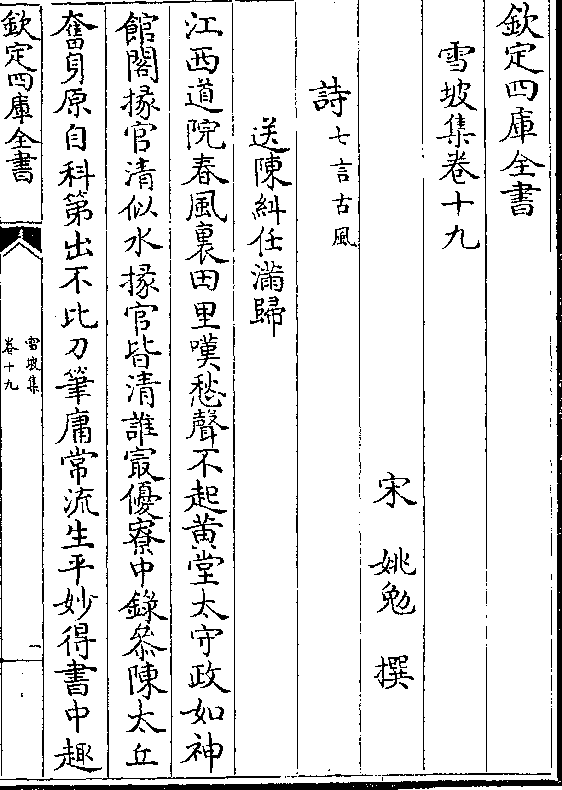 欽定四庫全書
雪坡集卷十九
宋 姚勉 撰
詩七言古風
送陳糾任滿歸
江西道院春風裏田里嘆愁聲不起黄堂太守政如神
館閣掾官清似水掾官皆清誰寂優寮中錄叅陳太丘
奮身原自科第出不比刀筆庸常流生平妙得書中趣
欽定四庫全書
雪坡集
卷十九
一